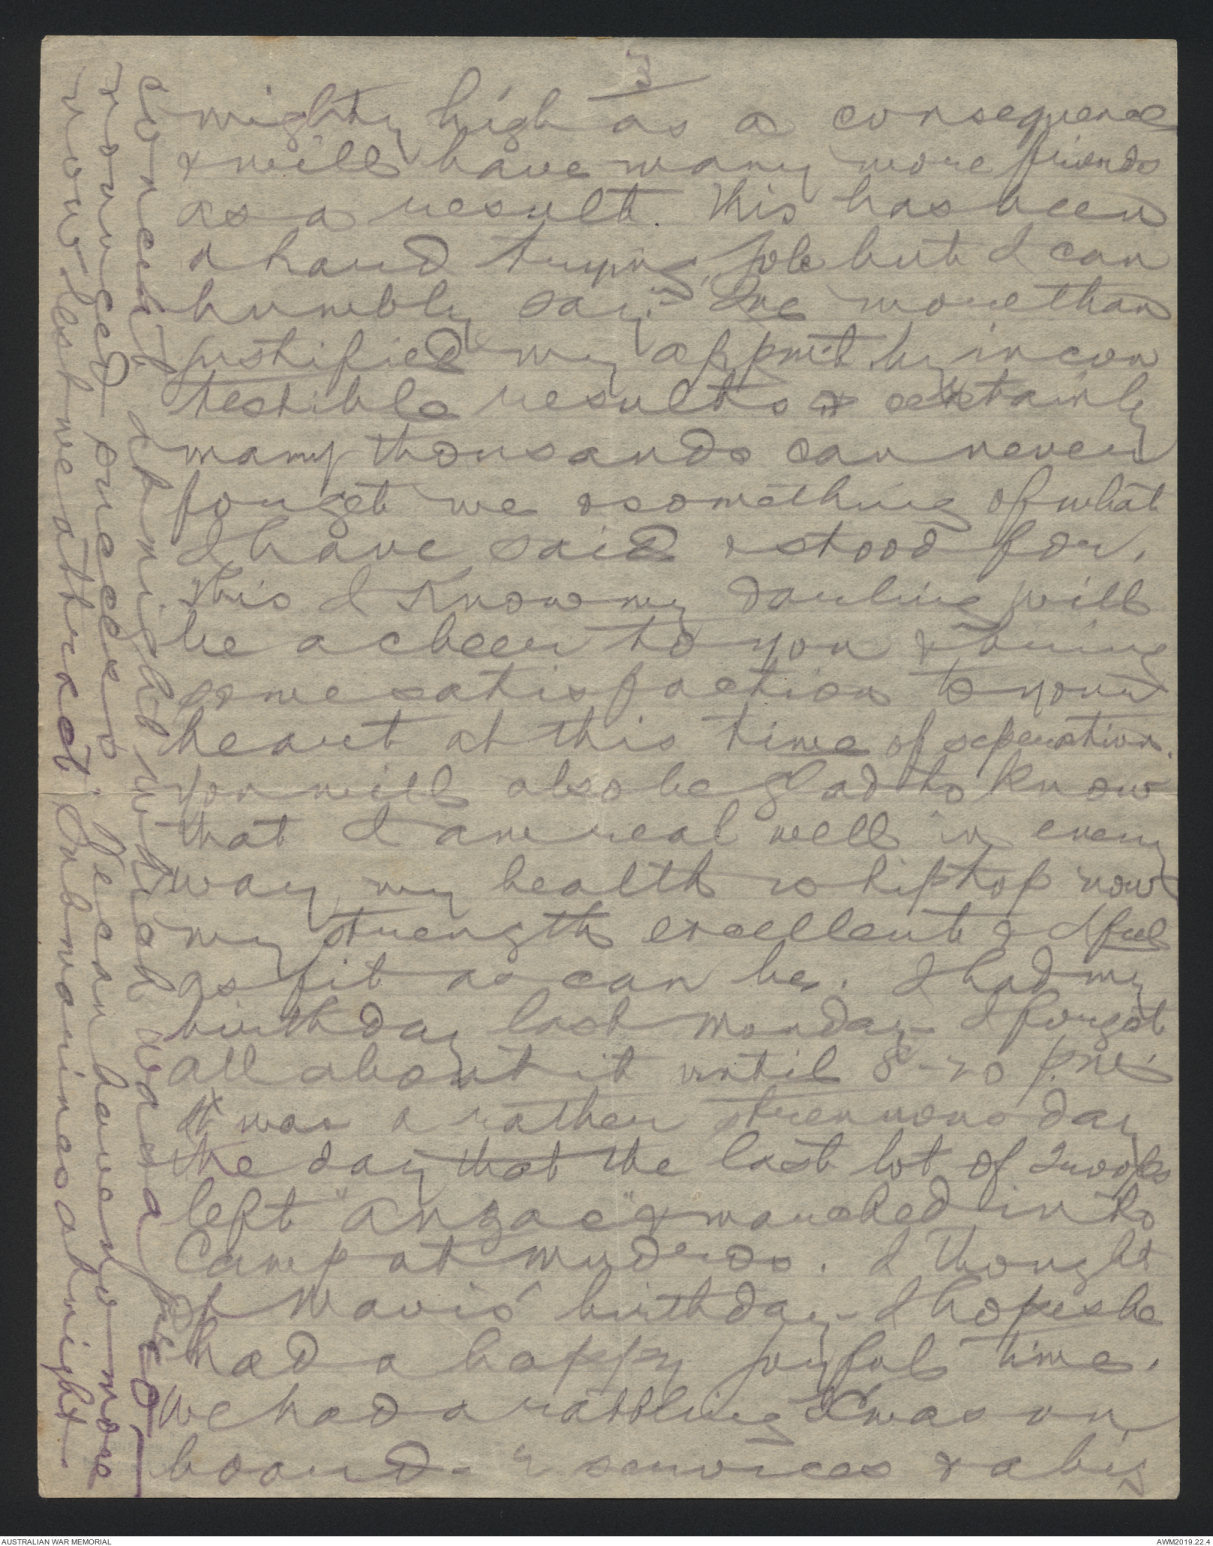 3
mighty high as a consequence
& will have many more friends
as a result. This has been
a hard trying job but I can
humbly say "I've more than
justified" my appmt. by incon
testible results & certainly
many thousands can never
forget me & something of what
I have said & stood for.
This I know my darling will
be a cheer to you & bring
some satisfaction to your
heart at this time of seperation.
You will also be glad to know
that I am real well in every
way, my health is hiptop now
my strength excellent & I feel
as fit as can be. I had my
birthday last Monday - I forgot
all about it until 8-20 p.m.
It was a rather strenuous day
the day that the last lot of Troops
left "Anzac" & marched into
Camp at Mudros. I thought
of Mavis' birthday - I hope she
had a happy joyful time.
We had a rattling Xmas on
board - services & a big
concert at night which was a pro
nounced success. We can have no more
now lest we attract Submarines at night
AUSTRALIAN WAR MEMORIAL
AWM2019.22.4